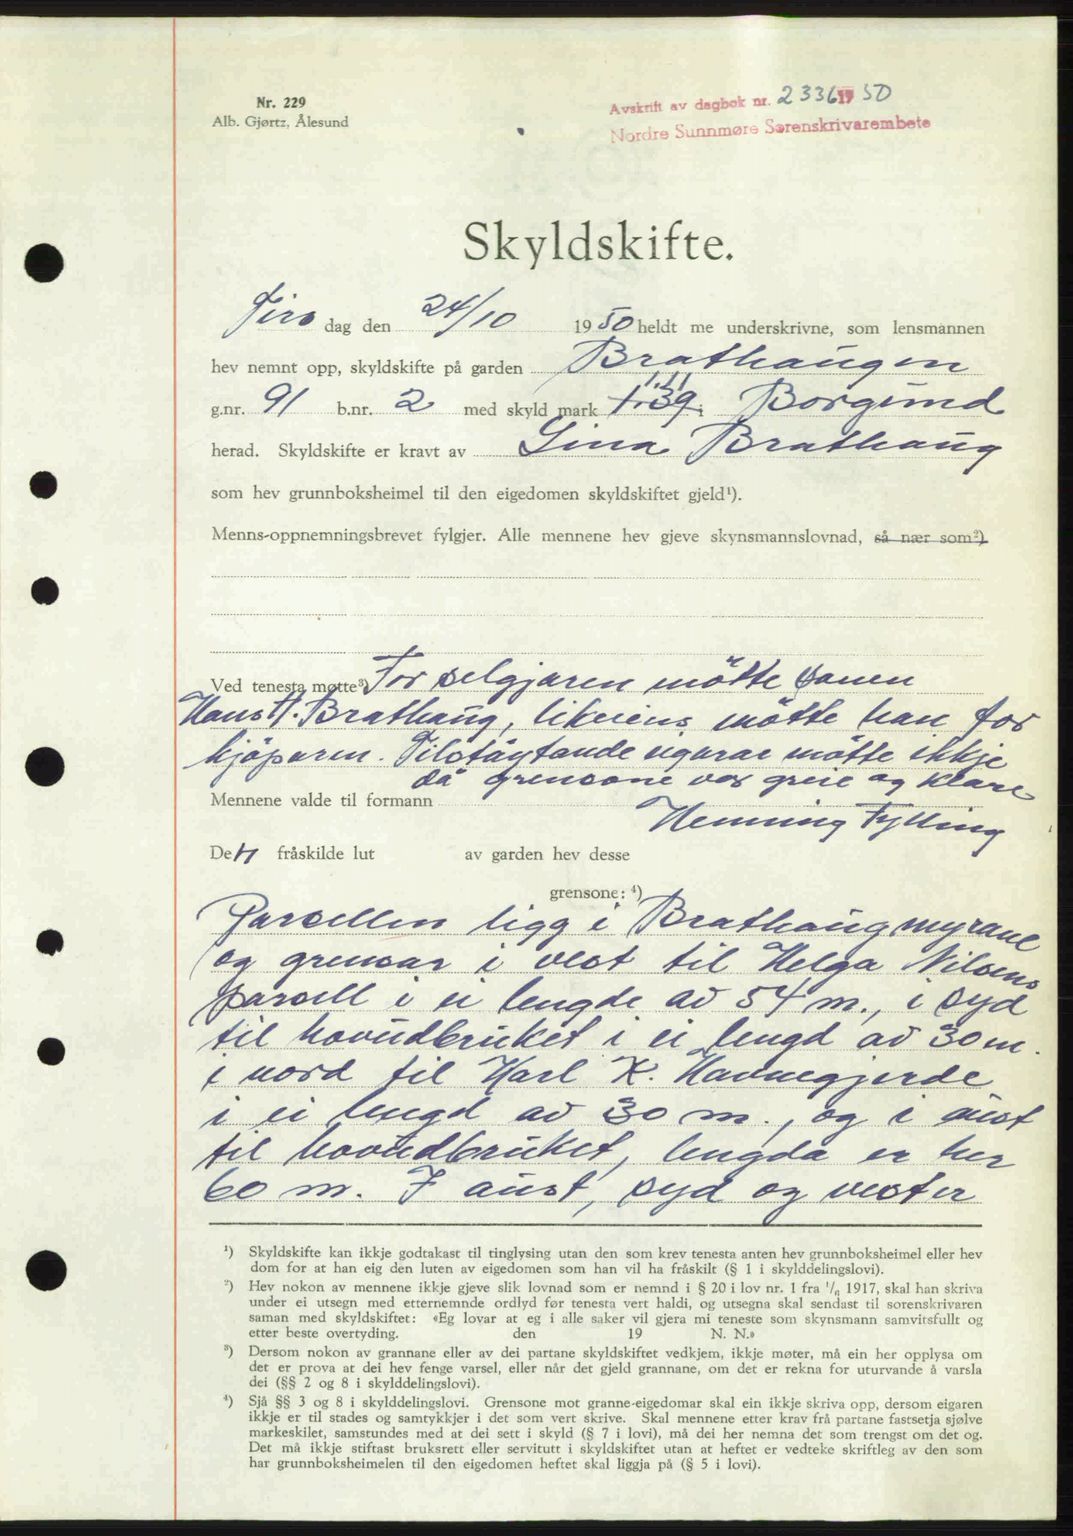 Nr. 229
Alb. Gjørtz, Ålesund
Avskrift av dagbok nr. 2336 19 50
Nordre Sunnmøre Sørenskrivarembete
Skyldskifte.
Tirsdag den 24/10 1950 heldt me underskrivne, som lensmannen
hev nemnt opp, skyldskifte på garden Brathaugen
1.11
g.nr. 91 b.nr. 2 med skyld mark 1.39 i Borgund
herad. Skyldskifte er kravt av Lina Brathaug
som hev grunnboksheimel til den eigedomen skyldskiftet gjeld¹).
Menns-oppnemningsbrevet fylgjer. Alle mennene hev gjeve skynsmannslovnad, så nær som²)
Ved tenesta møtte³) For selgjaren mötte sonen
Hans H. Brathaug, likeiens mötte han for
kjöparen. Tilstøytande eigarar mötte ikkje
då grensone var greie og klare
Mennene valde til formann
Henning Fylling
Den fråskilde lut av garden hev desse
grensone: ⁴)
Parsellen ligg i Brathaugmyrane
og grensar i vest til Helga Nilsens
parsell i ei lengde av 54 m., i syd
til hovudbruket i ei lengd av 30 m.
i nord til Karl K. Havnegjerde
i ei lengd av 30 m., og i aust
til hovudbruket, lengda er her
60 m. I aust, syd og vester
¹) Skyldskifte kan ikkje godtakast til tinglysing utan den som krev tenesta anten hev grunnboksheimel eller hev
dom for at han eig den luten av eigedomen som han vil ha fråskilt (§ 1 i skylddelingslovi).
²) Hev nokon av mennene ikkje gjeve slik lovnad som er nemnd i § 20 i lov nr. 1 fra ¹/₆ 1917, skal han skriva
under ei utsegn med etternemnde ordlyd før tenesta vert haldi, og utsegna skal sendast til sorenskrivaren
saman med skyldskiftet: «Eg lovar at eg i alle saker vil gjera mi teneste som skynsmann samvitsfullt og
etter beste overtyding. den 19 N. N.»
³) Dersom nokon av grannane eller av dei partane skyldskiftet vedkjem, ikkje møter, må ein her opplysa om
det er prova at dei hev fenge varsel, eller når det gjeld grannane, om det er rekna for uturvande å varsla
dei (§§ 2 og 8 i skylddelingslovi).
⁴) Sjå §§ 3 og 8 i skylddelingslovi. Grensone mot granne-eigedomar skal ein ikkje skriva opp, dersom eigaren
ikkje er til stades og samtykkjer i det som vert skrive. Skal mennene etter krav frå partane fastsetja sjølve
markeskilet, samstundes med at dei sett i skyld (§ 7 i lovi), må dei her nemna det som trengst om det og.
Det må ikkje stiftast bruksrett eller servitutt i skyldskiftet utan at heftet er vedteke skriftleg av den som
har grunnboksheimelen til den eigedomen heftet skal liggja på (§ 5 i lovi).